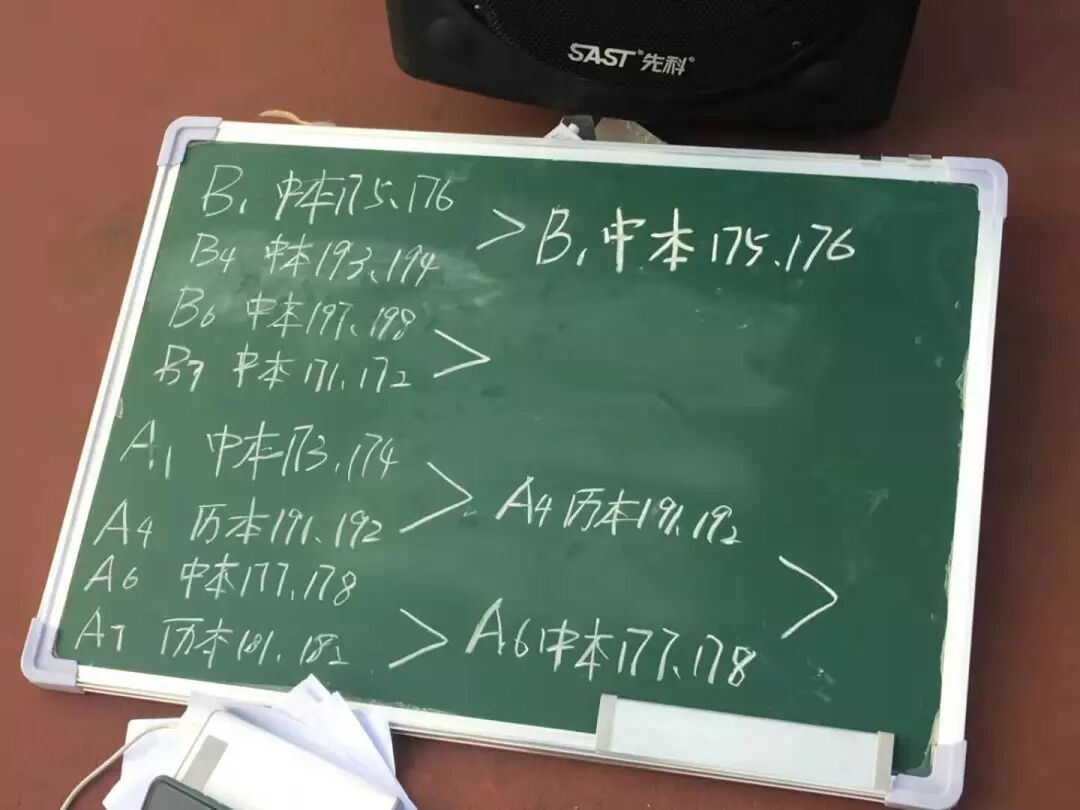 SAST 先科
B1 中本175、176
B4 中本193、194
B6 中本197、198
B7 中本171、172
> B1 中本175、176
>
A1 中本173、174
A4 历本191、192
A6 中本177、178
A7 历本181、182
> A4 历本191、192
> A6 中本177、178
>